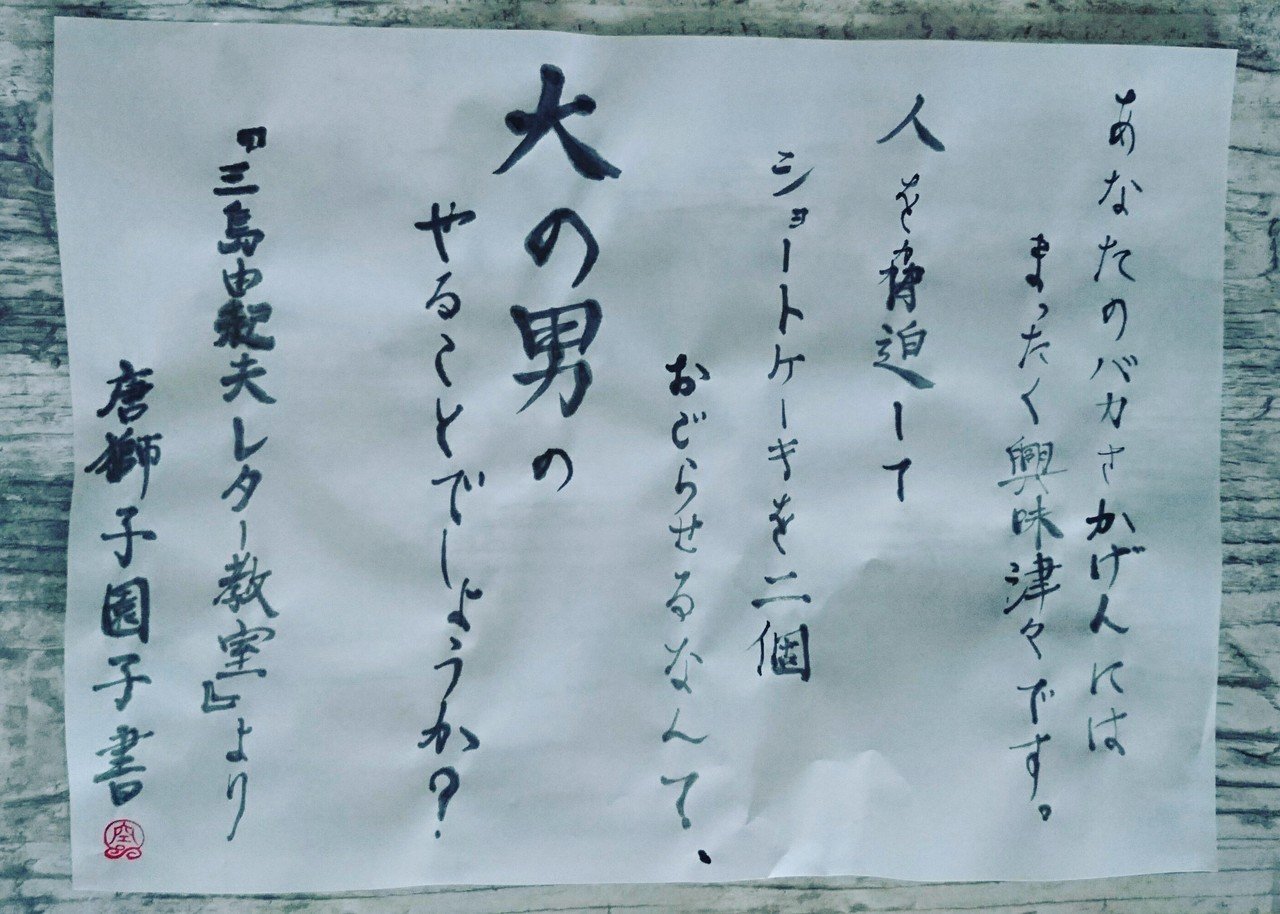 あなたのバカさかげんには
まったく興味津々です。
人を脅迫して
ショートケーキを二個
おごらせるなんて、
大の男の
やることでしょうか?
『三島由紀夫レター教室』より
唐獅子園子書
空